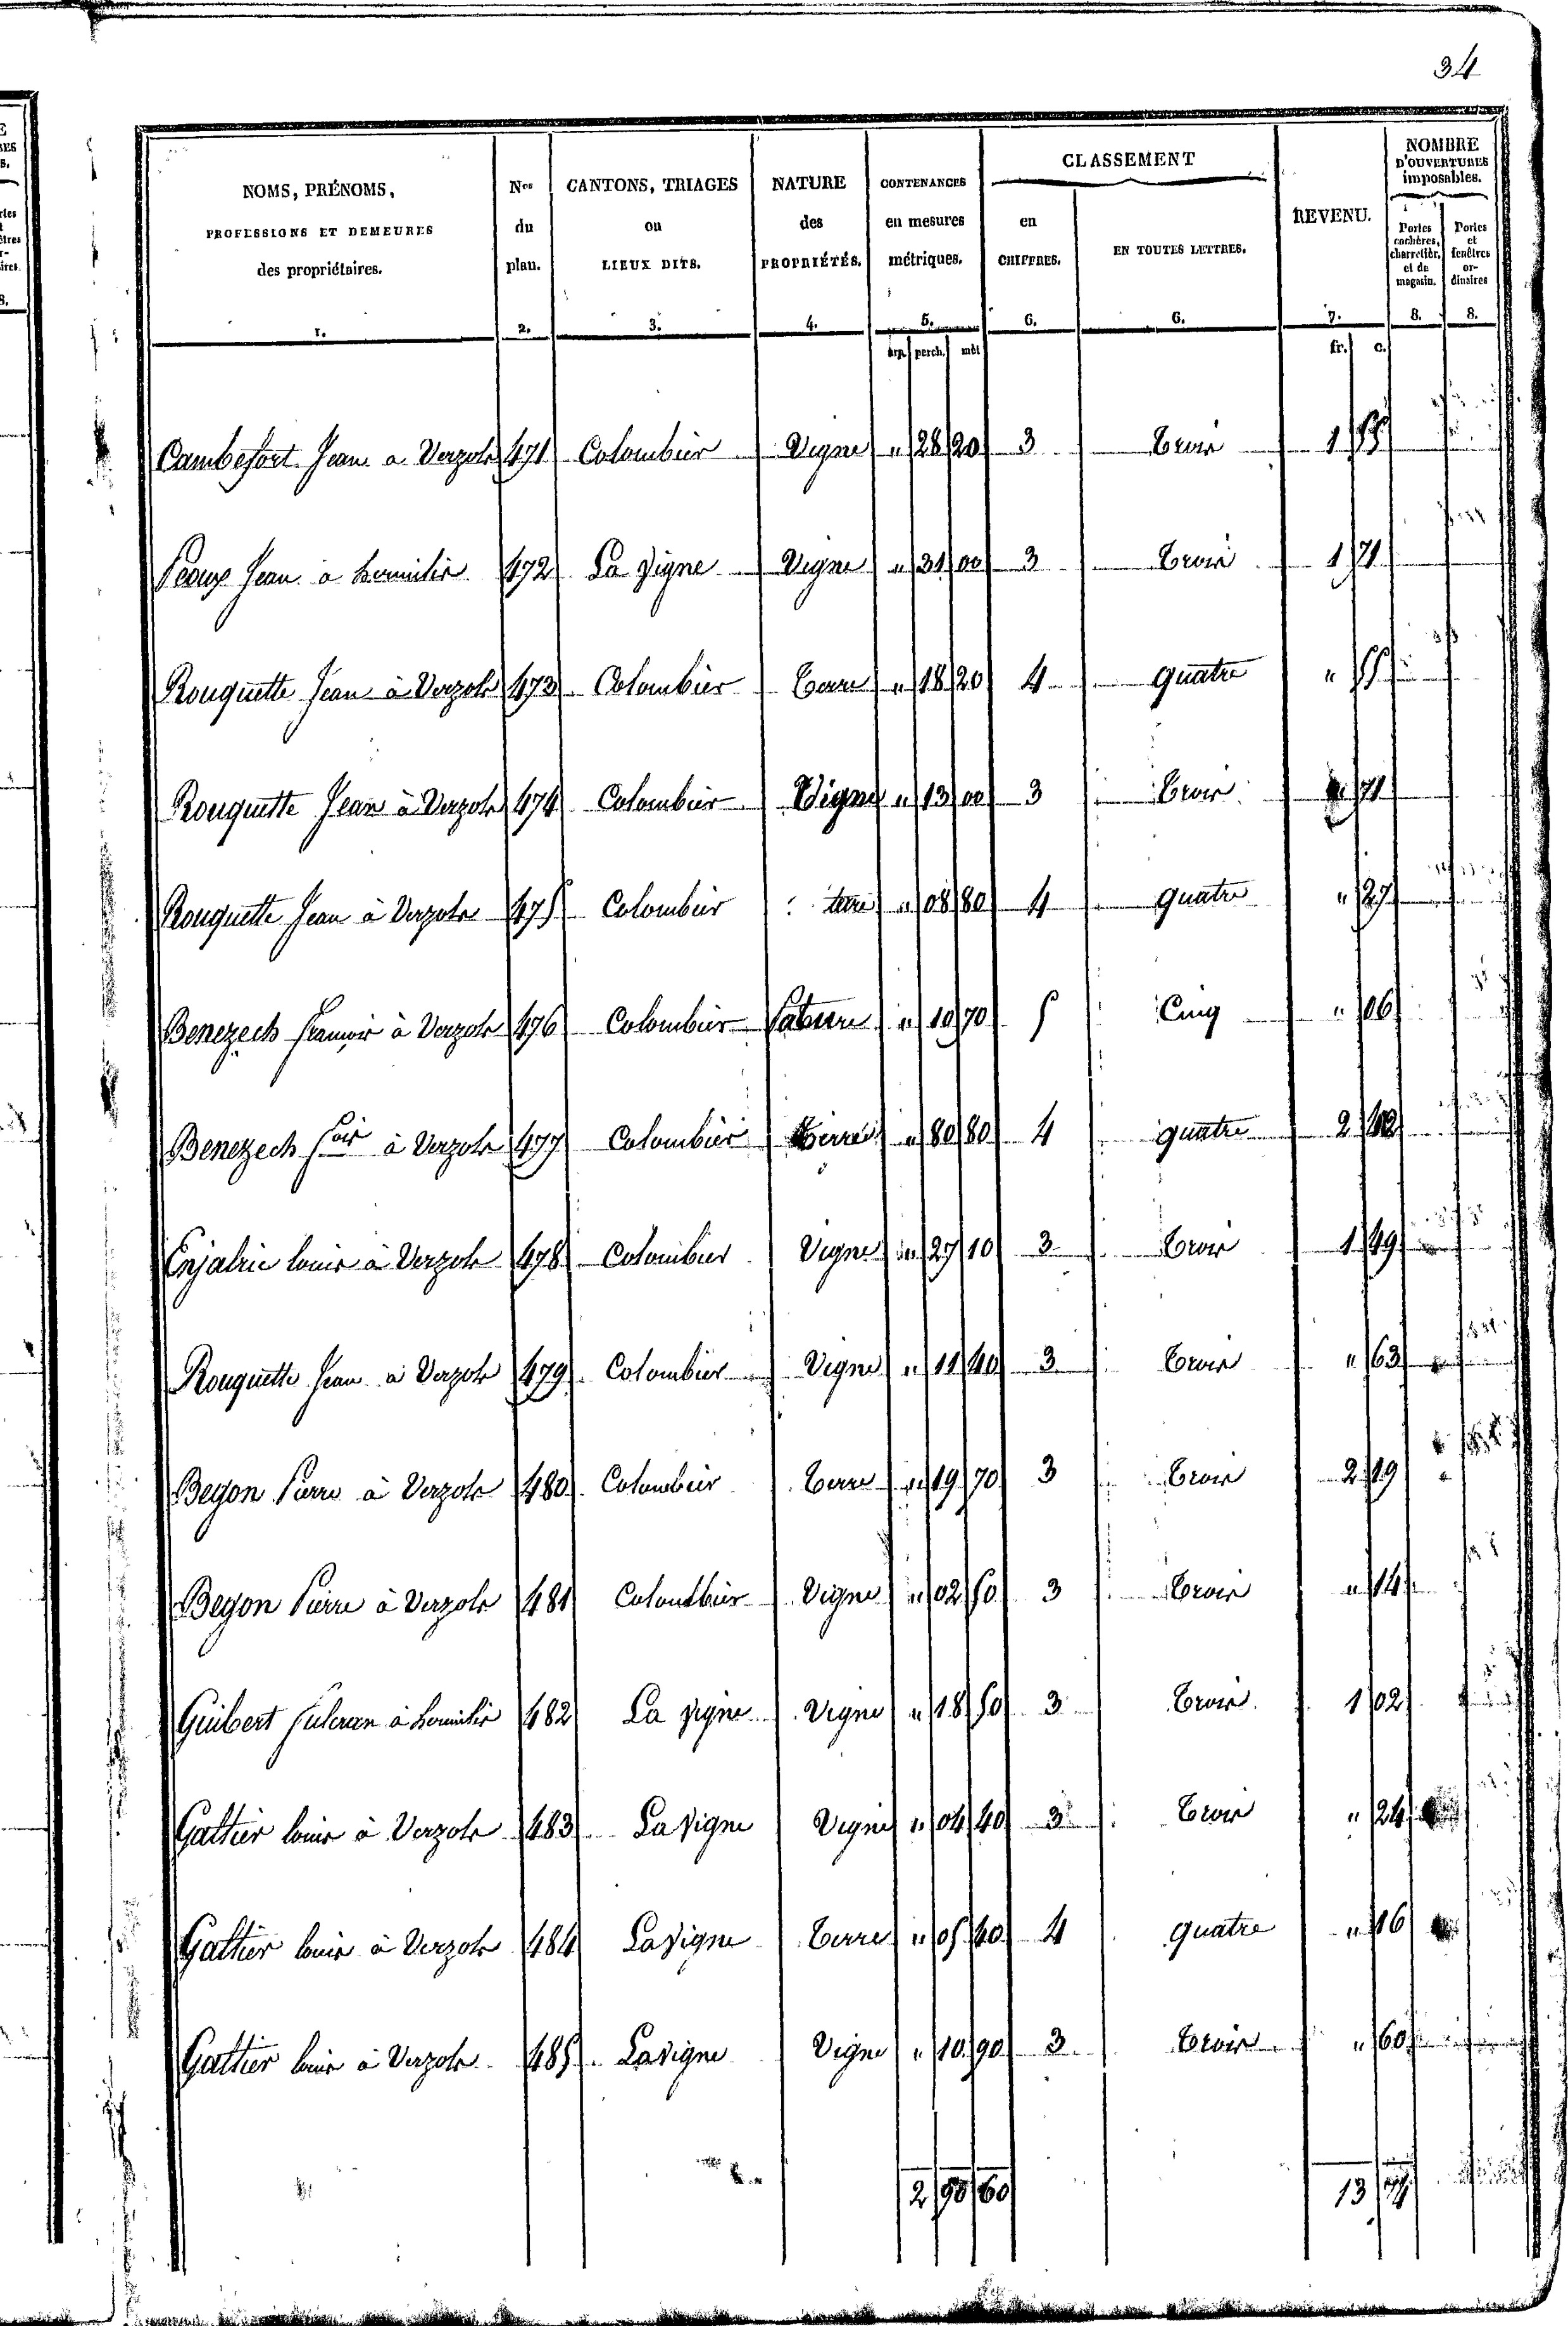 34
NOMS, PRÉNOMS, PROFESSIONS ET DEMEURES des propriétaires. Nos du plan. CANTONS, TRIAGES ou LIEUX DITS. NATURE des PROPRIÉTÉS. CONTENANCES en mesures métriques. CLASSEMENT en CHIFFRES. EN TOUTES LETTRES. REVENU. NOMBRE D'OUVERTURES imposables. Portes cochères, charretièr. et de magasin. Portes et fenêtres or- dinaires
1. 2. 3. 4. 5. 6. 6. 7. 8. 8.
arp. perch. mèt fr. c.
Cambefort Jean a Verzols 471 Colombier Vigne " 28 20 3 Trois 1 55
Jean à 472 La Vigne Vigne " 31 00 3 Trois 1 71
Rouquette Jean à Verzols 473 Colombier Terre " 18 20 4 quatre " 55
Rouquette Jean à Verzols 474 Colombier Vigne " 13 00 3 Trois 71
Rouquette Jean à Verzols 475 Colombier terre " 08 80 4 quatre " 27
Benezech francois à Verzols 476 Colombier Pature " 10 70 5 Cinq " 06
Benezech fois à Verzols 477 Colombier Terre " 80 80 4 quatre 2 42
Enjalric louis à Verzols 478 Colombier Vigne " 27 10 3 Trois 1 49
Rouquette Jean à Verzols 479 Colombier Vigne " 11 40 3 Trois " 63
Begon Pierre à Verzols 480 Colombier Terre " 19 70 3 Trois 2 19
Begon Pierre à Verzols 481 Colombier Vigne " 02 50 3 Trois " 14
Guibert fulcran à 482 La vigne Vigne " 18 50 3 Trois 1 02
Galtier louis à Verzols 483 La Vigne Vigne " 04 40 3 Trois " 24
Galtier louis à Verzols 484 La vigne Terre " 05 40 4 quatre " 16
Galtier louis à Verzols 485 Lavigne Vigne " 10 90 3 Trois " 60
2 90 60 13 74